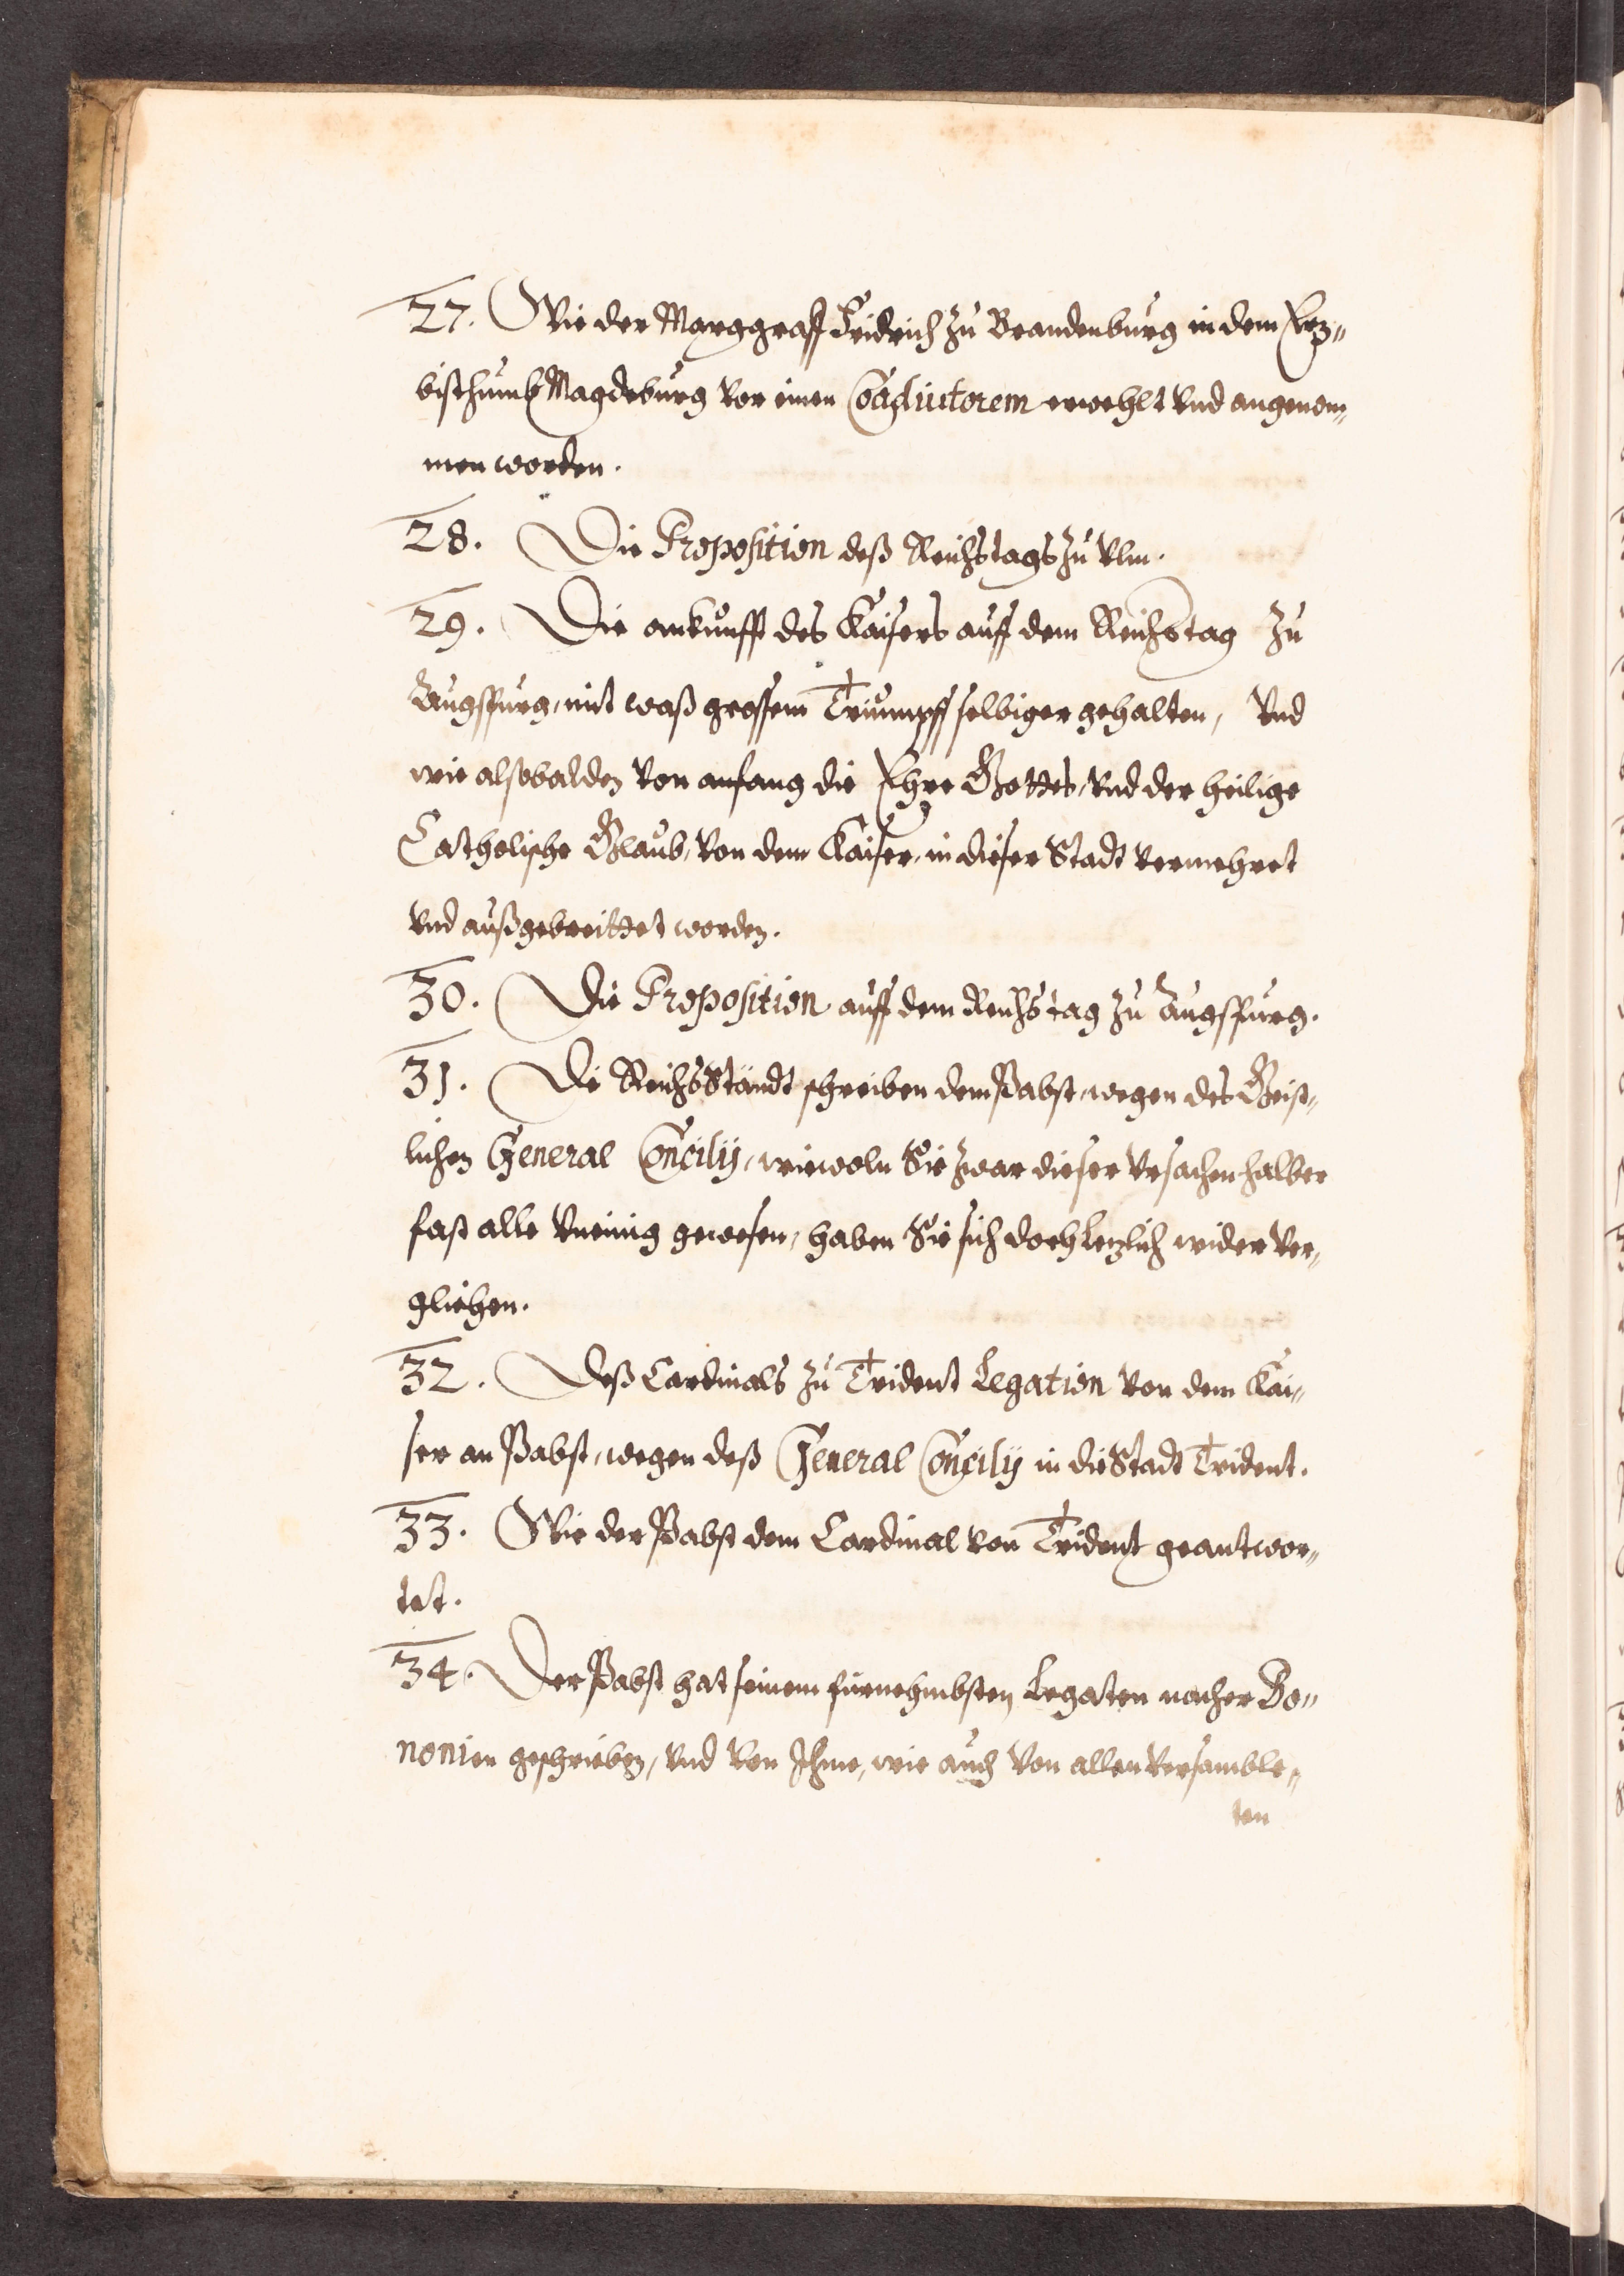 27. Wie der Marggraff Fridrich zu Brandenburg in dem Erz-
bisthumb Magdeburg vor einen Coadiutorem erwehlt vnd angenom-
men worden.
28. Die Proposition deß Reichstags zu Vlm.
29. Die ankunfft des Kaisers auff dem Reichstag zu
Augspurg, mit waß grossem Triumpff selbiger gehalten, vnd
wie alsobalden von anfang die Ehre Gottes, vnd der heilige
Catholische Glaub, von dem Kaiser, in dieser Stadt vermehret
vnd außgebreittet worden.
30. Die Proposition auff dem Reichstag zu Augspurg.
31. Die ReichsStändt schreiben dem Pabst, wegen des Geist-
lichen General Concilij, wiewoln Sie zwar dieser Vrsachen halber
fast alle Vneinig gewesen, haben Sie sich doch letzlich wider ver-
glichen.
32. Deß Cardinals zu Trident Legation von dem Kai-
ser an Pabst, wegen deß General Concilij in die Stadt Trident.
33. Wie der Pabst dem Cardinal von Trident geantwor-
tet.
34. Der Pabst hat seinem fürnehmbsten Legaten nacher Bo-
nonien geschrieben, vnd von Ihme, wie auch von allen versamble-
ten